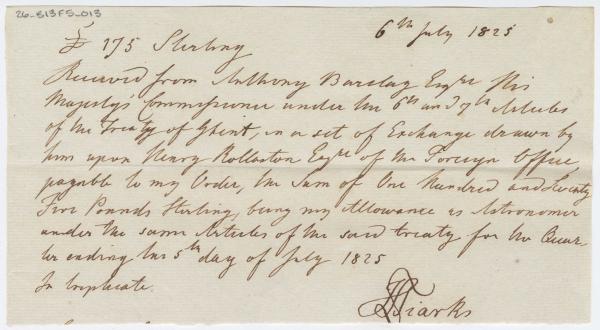 26-S13F5_013
6th July 1825
£ 175 Sterling
Received from Anthony Barclay Esqre His
Majesty's Commissioner under the 6th and 7th Articles
of the Treaty of Ghent, in a set of Exchange drawn by
him upon Henry Rolleston Esqre of the Foreign Office,
payable to my Order, the Sum of One Hundred and Seventy
Five Pounds Sterling, being my Allowance as Astronomer
under the same Articles of the said treaty for the Quar-
ter ending the 5th day of July 1825
In triplicate.
Tiarks